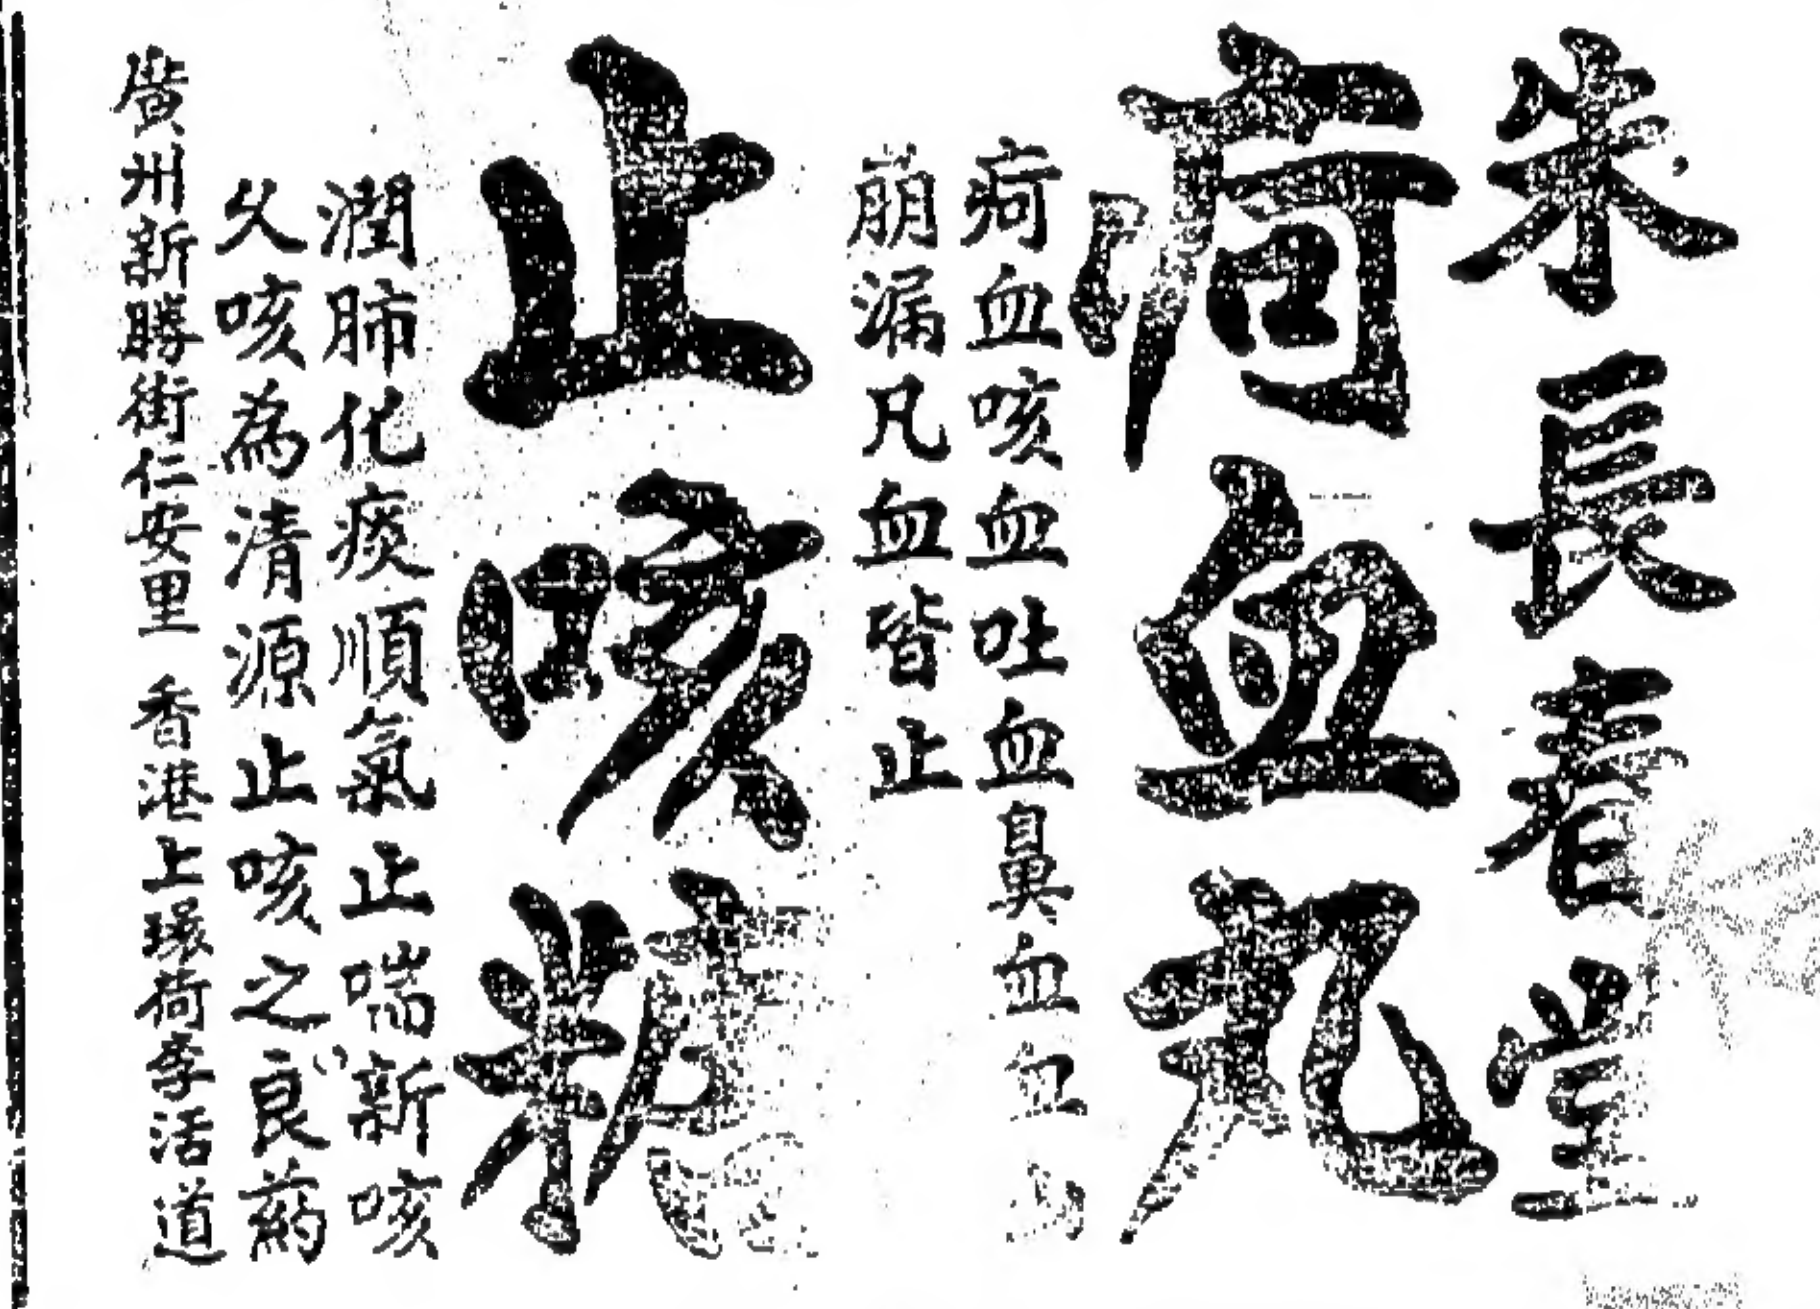 朱長春堂
疴血丸
疴血咳血吐血鼻血
崩漏凡血皆止
止咳糖
潤肺化痰順氣止喘新咳
久咳為清源止咳之良葯
廣州新勝街仁安里 香港上環荷李活道